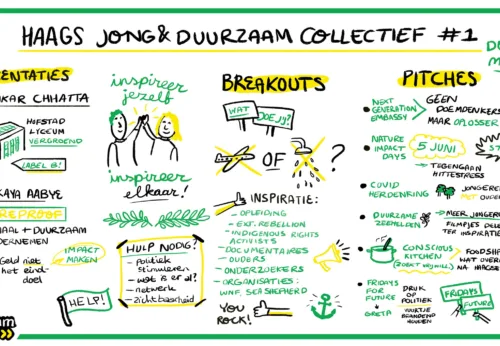 HAAGS JONG & DUURZAAM COLLECTIEF #1
ENTATIES
KAR CHHATTA
HOFSTAD
LYCEUM
VERGROEND
LABEL B!
KAYA AABYE
REPROOF
AAL + DUURZAAM
DERNEMEN
Geld niet
het eind-
doel
IMPACT
MAKEN
HELP!
inspireer
jezelf
inspireer
elkaar!
HULP NODIG?
- Politiek
Stimuleren
- wat is er al?
- netwerk
- zichtbaarheid
BREAKOUTS
WAT
DOE JIJ?
OF
?
INSPIRATIE:
- OPLEIDING
- EXT. REBELLION
- INDIGENOUS RIGHTS
ACTIVISTS
- DOCUMENTAIRES
- OUDERS
- ONDERZOEKERS
- ORGANISATIES:
WNF, SEA SHEPHERD
YOU
ROCK!
PITCHES
NEXT
GENERATION
EMBASSY
GÉÉN
DOEMDENKERS
MAAR OPLOSSER
NATURE
IMPACT
DAYS
5 JUNI
TEGENGAAN
HITTESTRESS
COVID
HERDENKING
JONGERE
OUDE
DUURZAME
MEER JONGER
FILMPJES DELE
TER INSPIRATIE
CONSCIOUS
KITCHEN
FOODSH
WAT OVER
NA HAAGSE
FRIDAYS
FOR
FUTURE
+
GRETA
DRUK
OP
POLITIEK
VUURTJE
BRANDEND
HOUDEN
FRIDAYS
FUTURE